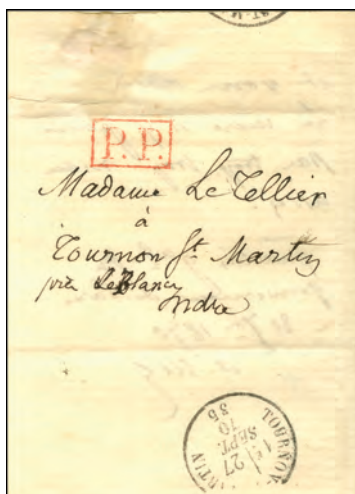 ST-M
P.P.
Madame LeTellier
à
Tournon St. Martin
près LeBlanc
Indre
TOURNON
1E
27
SEPT.
70
35
ARTIN